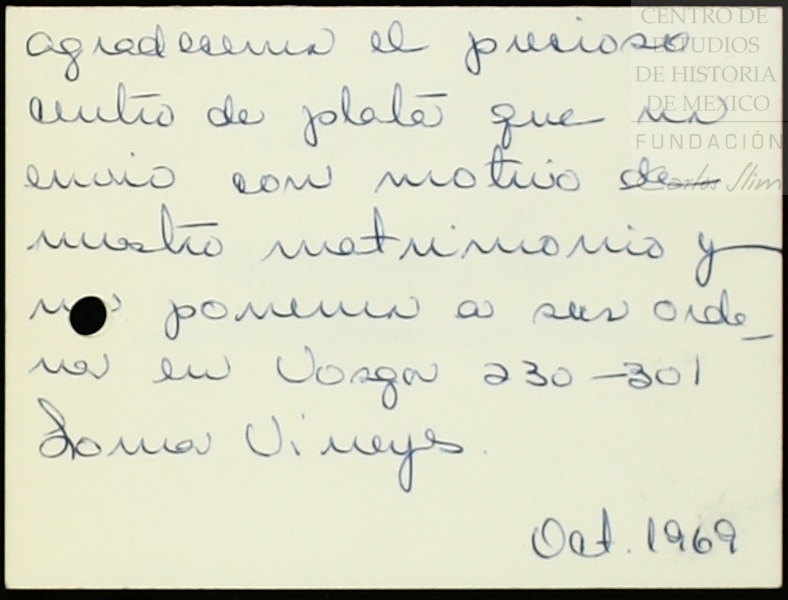 agradecemos el precioso
centro de plata que nos
envio con motivo de
nuestro matrimonio y
ponemos a sus orde_
nes en Vosgos 230 – 301
Lomas Virreyes.
Oct. 1969
CENTRO DE
ESTUDIOS
DE HISTORIA
DE MEXICO
FUNDACIÓN
Carlos Slim